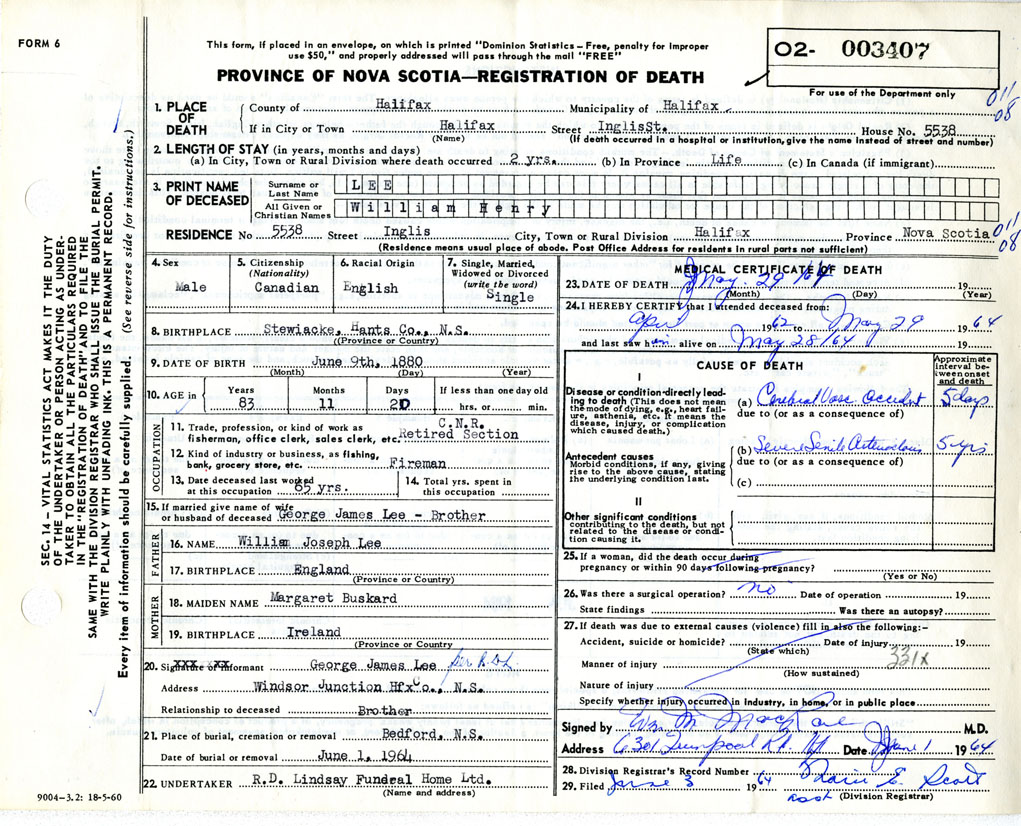 FORM 6
This form, if placed in an envelope, on which is printed "Dominion Statistics – Free, penalty for improper
use $50," and properly addressed will pass through the mail "FREE"
O2- 003407
For use of the Department only
PROVINCE OF NOVA SCOTIA—REGISTRATION OF DEATH
011
08
1. PLACE OF DEATH
County of Halifax Municipality of Halifax
If in City or Town Halifax Street InglisSt. House No. 5538
(Name) (If death occurred in a hospital or institution, give the name instead of street and number)
2. LENGTH OF STAY (in years, months and days)
(a) In City, Town or Rural Division where death occurred 2 yrs. (b) In Province Life (c) In Canada (if immigrant)
3. PRINT NAME OF DECEASED
Surname or Last Name LEE
All Given or Christian Names William Henry
RESIDENCE No 5538 Street Inglis City, Town or Rural Division Halifax Province Nova Scotia
011
08
(Residence means usual place of abode. Post Office Address for residents in rural parts not sufficient)
4. Sex
Male
5. Citizenship
(Nationality)
Canadian
6. Racial Origin
English
7. Single, Married,
Widowed or Divorced
(write the word)
Single
8. BIRTHPLACE Stewiacke, Hants Co., N.S.
(Province or Country)
9. DATE OF BIRTH June 9th, 1880
(Month) (Day) (Year)
10. AGE in
Years Months Days If less than one day old
83 11 20 hrs. or min.
OCCUPATION
11. Trade, profession, or kind of work as C.N.R.
fisherman, office clerk, sales clerk, etc. Retired Section
12. Kind of industry or business, as fishing,
bank, grocery store, etc. Fireman
13. Date deceased last worked
at this occupation 65 yrs.
14. Total yrs. spent in
this occupation
15. If married give name of wife
or husband of deceased George James Lee - Brother
FATHER
16. NAME William Joseph Lee
17. BIRTHPLACE England
(Province or Country)
MOTHER
18. MAIDEN NAME Margaret Buskard
19. BIRTHPLACE Ireland
(Province or Country)
20. Signature of Informant George James Lee per R.D.L.
Address Windsor Junction Hfx Co., N.S.
Relationship to deceased Brother
21. Place of burial, cremation or removal Bedford, N.S.
Date of burial or removal June 1, 1964
22. UNDERTAKER R.D. Lindsay Funeral Home Ltd.
(Name and address)
MEDICAL CERTIFICATE OF DEATH
23. DATE OF DEATH May. 29/64 19
(Month) (Day) (Year)
24. I HEREBY CERTIFY that I attended deceased from:
April 1962 to May 29 1964
and last saw him alive on May 28/64 19
CAUSE OF DEATH
Approximate
interval be-
tween onset
and death
I
Disease or condition directly lead-
ing to death (This does not mean
the mode of dying, e.g., heart fail-
ure, asthenia, etc. It means the
disease, injury, or complication
which caused death.)
(a) Cerebral Vasc Accident 5 days
due to (or as a consequence of)
Antecedent causes
Morbid conditions, if any, giving
rise to the above cause, stating
the underlying condition last.
(b) Severe Senile 5 yrs
due to (or as a consequence of)
(c)
II
Other significant conditions
contributing to the death, but not
related to the disease or condi-
tion causing it.
25. If a woman, did the death occur during
pregnancy or within 90 days following pregnancy?
(Yes or No)
26. Was there a surgical operation? no Date of operation 19
State findings Was there an autopsy?
27. If death was due to external causes (violence) fill in also the following:–
Accident, suicide or homicide? Date of injury 19
(State which)
331X
Manner of injury
(How sustained)
Nature of injury
Specify whether injury occurred in industry, in home, or in public place
Signed by Wm M. M.D.
Address 6301 Quinpool Rd. Date June 1 1964
28. Division Registrar's Record Number
29. Filed June 3 1964 E. Scott
asst (Division Registrar)
SEC. 14 – VITAL STATISTICS ACT MAKES IT THE DUTY
OF THE UNDERTAKER OR PERSON ACTING AS UNDER-
TAKER TO OBTAIN ALL THE PARTICULARS REQUIRED
IN THE "REGISTRATION OF DEATH" AND TO FILE THE
SAME WITH THE DIVISION REGISTRAR WHO SHALL ISSUE THE BURIAL PERMIT.
WRITE PLAINLY WITH UNFADING INK. THIS IS A PERMANENT RECORD.
Every item of information should be carefully supplied. (See reverse side for instructions.)
9004–3.2: 18-5-60